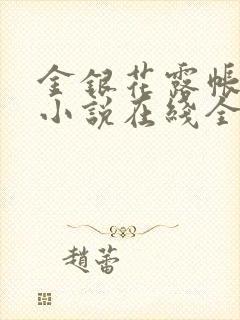 金银花露帐
小说在线全
趙蕾